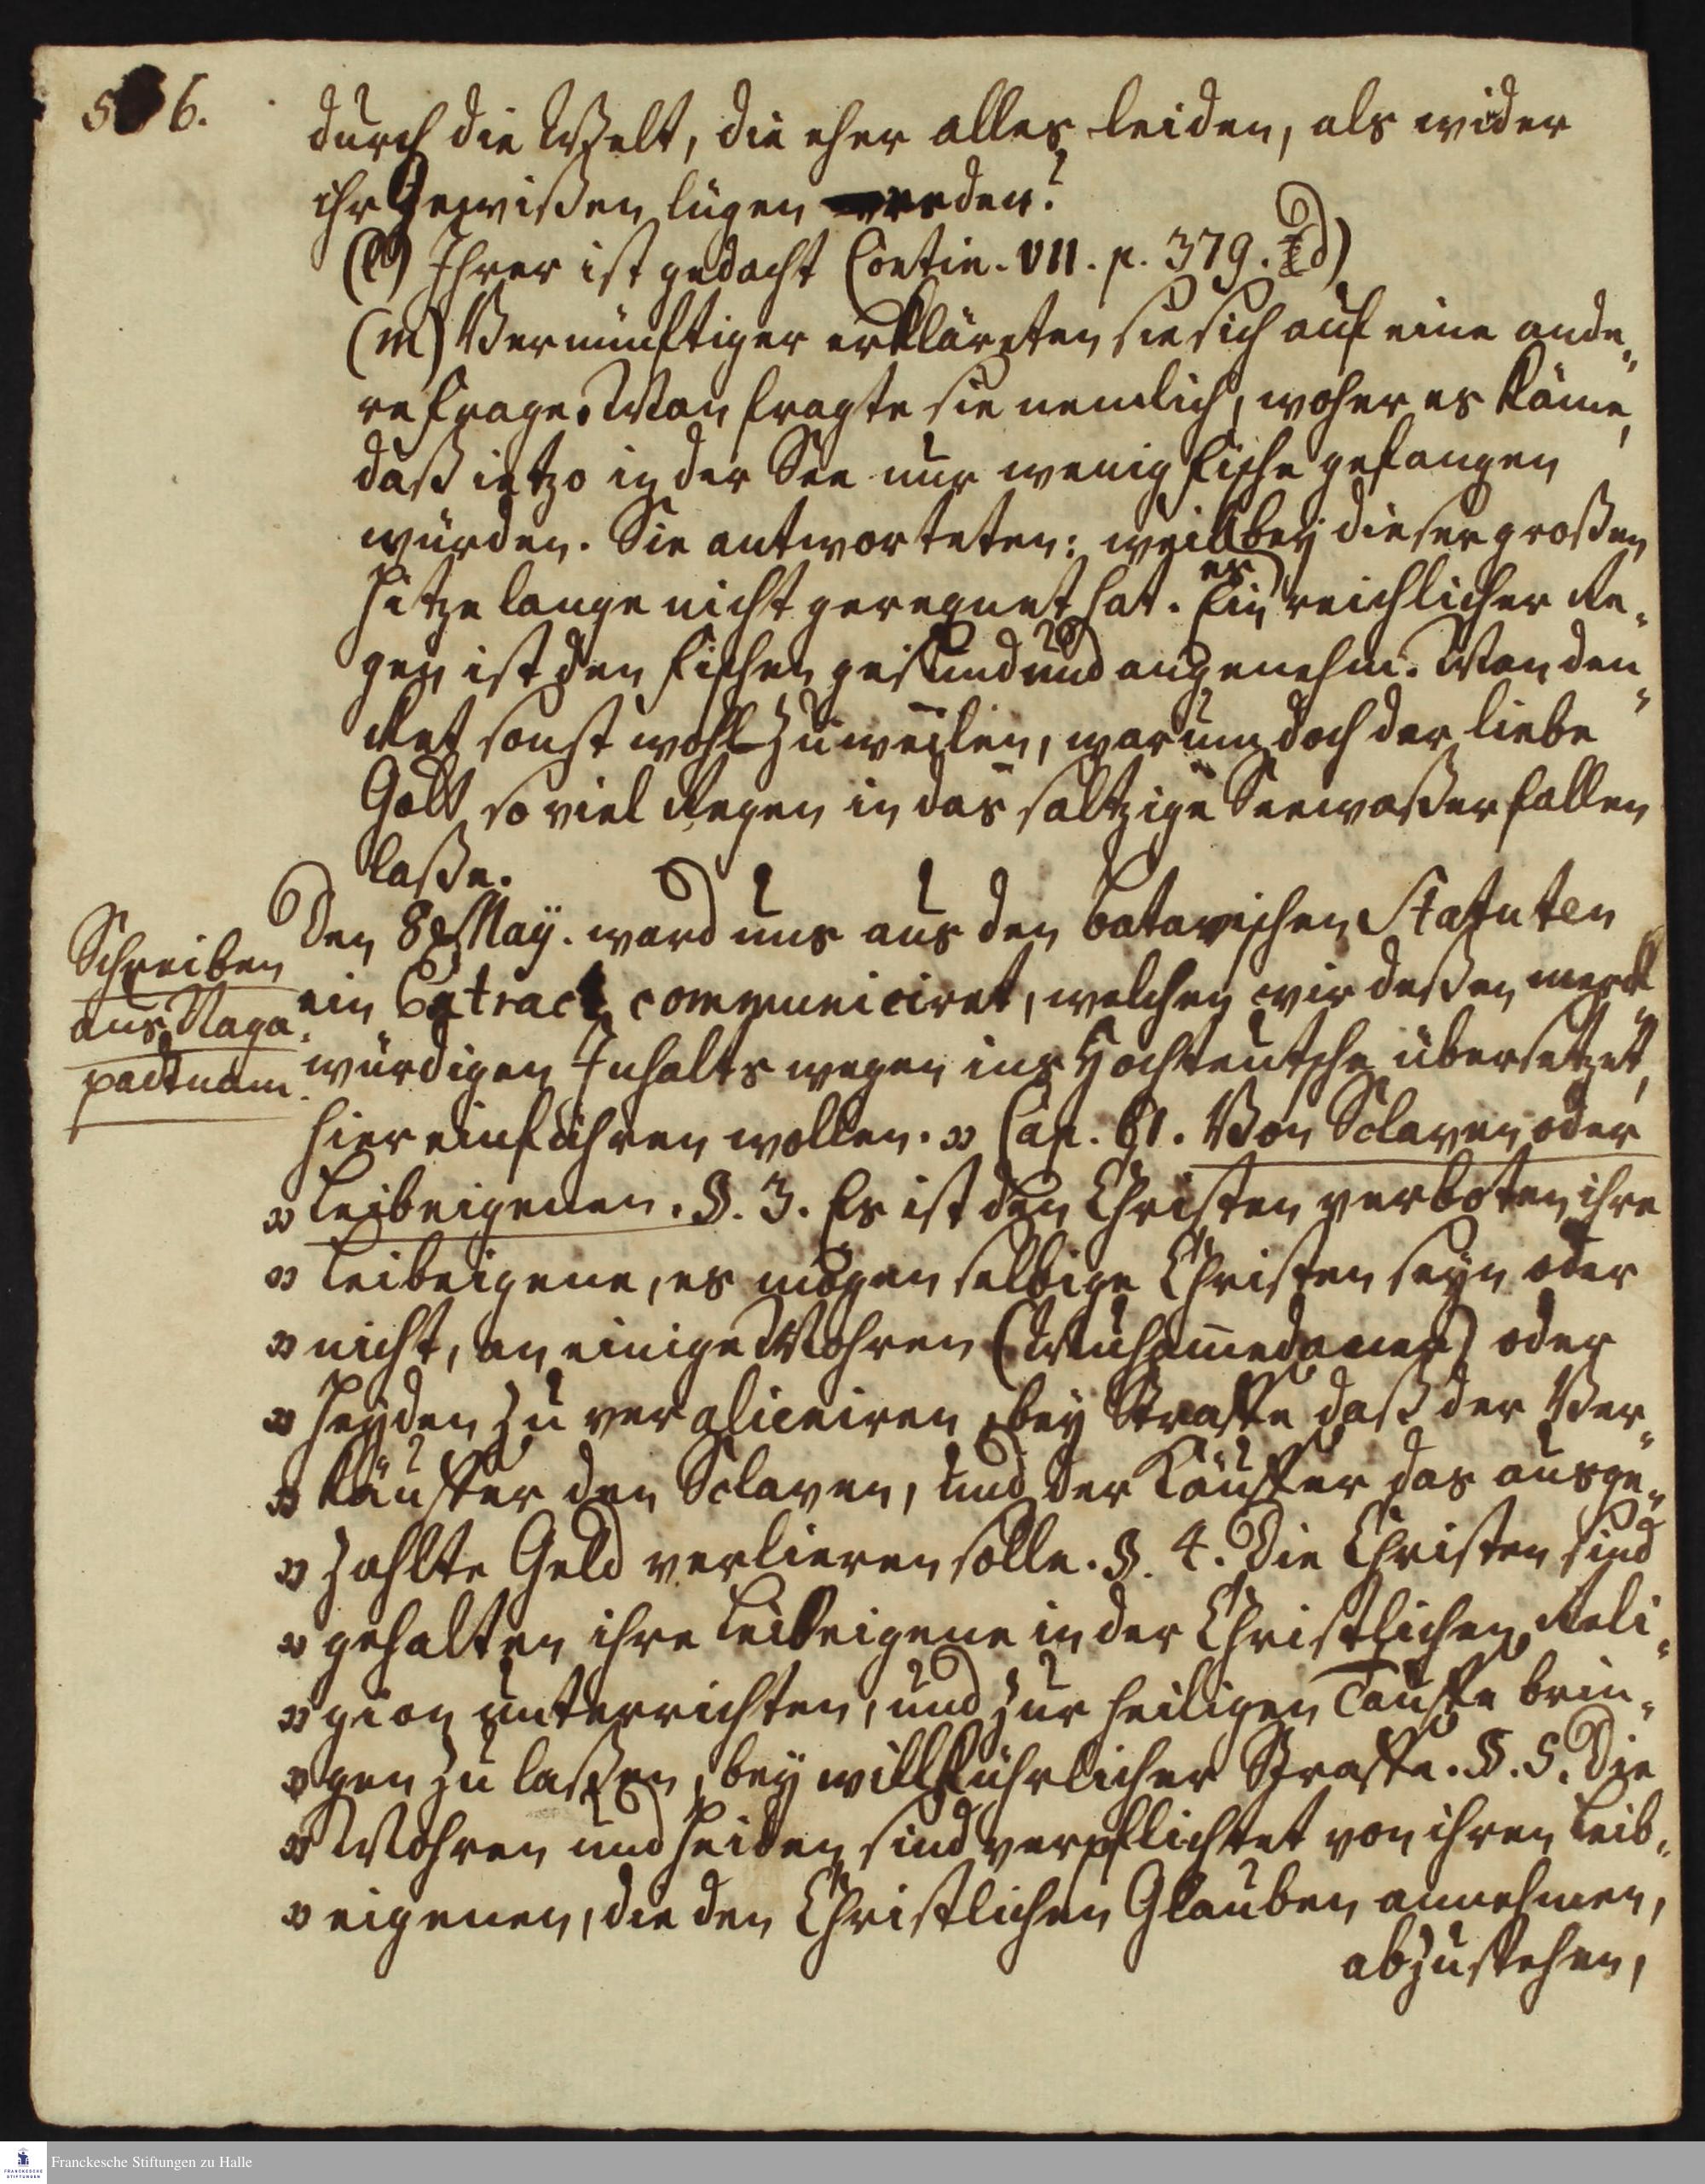 6.
durch die Welt, die eher alles leiden, als wider
ihr Gewißen lügen werden?
(l) Ihrer ist gedacht Contin. VII. p. 379.
(m) Vernünftiger erkläreten sie sich auf eine ande„
re Frage. Man fragte sie nemlich, woher es käme,
daß ietzo in der See nur wenig Fische gefangen
würden. Sie antworteten: weil bey dieser großen
Hitze lange nicht geregnet hat. Ein reichlicher Re„
gen ist den Fischen gesund und angenehm. Man den„
ket sonst wohl zuweilen, warum doch der liebe
Gott so viel Regen in das saltzige Seewaßer fallen
laße.
Schreiben
aus Naga„
padtnam.
Den 8 May. ward uns aus den batavischen Statuten
ein Extract communiciret, welchen wir deßen merck„
würdigen Inhalts wegen ins Hochteutsche übersetzet,
hier einführen wollen. „ Cap. 61. Von Sclaven oder
„ Leibeigenen. §. 3. Es ist den Christen verboten ihre
„ Leibeigene, es mögen selbige Christen seyn oder
„ nicht, an einige Mohren (Muham̄edaner) oder
„ Heyden zu veralieniren, bey Straffe daß der Ver„
„ käuffer den Sclaven, und der Käuffer das ausge„
„ zahlte Geld verlieren solle. §. 4. Die Christen sind
„ gehalten ihre Leibeigene in der Christlichen Reli„
„ gion unterrichten, und zur heiligen Tauffe brin„
„ gen zu laßen, bey willkührlicher Straffe. §. 5. Die
„ Mohren und Heiden sind verpflichtet von ihren Leib„
„ eigenen, die den Christlichen Glauben annehmen,
abzustehen,
FRANCKESCHE STIFTUNGEN
Franckesche Stiftungen zu Halle